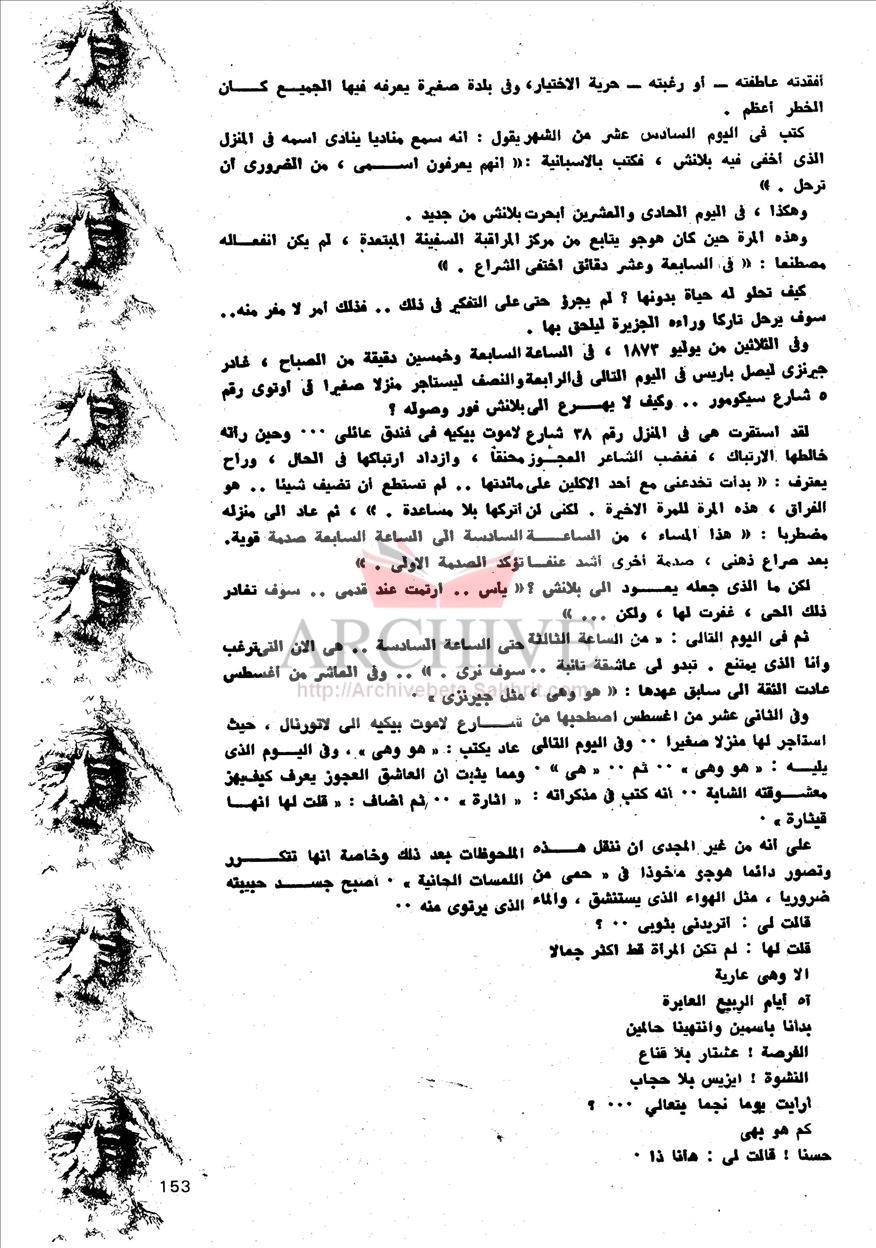 أفقدته عاطفته ـ أو رغبته ـ حرية الاختيار، وفى بلدة صغيرة يعرفه فيها الجميع كـــان
الخطر أعظم .
كتب فى اليوم السادس عشر من الشهر يقول : انه سمع مناديا ينادى اسمه فى المنزل
الذى أخفى فيه بلانش ، فكتب بالاسبانية :« انهم يعرفون اســـمى ، من الضرورى أن
ترحل . »
وهكذا ، فى اليوم الحادى والعشرين أبحرت بلانش من جديد .
وهذه المرة حين كان هوجو يتابع من مركز المراقبة السفينة المبتعدة ، لم يكن انفعـــاله
مصطنعا : « فى السابعة وعشر دقائق اختفى الشراع . »
كيف تحلو له حياة بدونها ؟ لم يجرؤ حتى على التفكير فى ذلك .. فذلك أمر لا مفر منه..
سوف يرحل تاركا وراءه الجزيرة ليلحق بها .
وفى الثلاثين من يوليو ١٨٧٣ ، فى الساعة السابعة وخمسين دقيقة من الصباح ، غادر
جيرنزى ليصل باريس فى اليوم التالى فى الرابعة والنصف ليستاجر منزلا صغيرا فى أوتوى رقم
٥ شارع سيكومور .. وكيف لا يهـــرع الى بلانش فور وصوله ؟
لقد استقرت هى فى المنزل رقم ٣٨ شارع لاموت بيكيه فى فندق عائلى ... وحين رأته
خالطها الارتباك ، فغضب الشاعر العجـوز محنقا ، وازداد ارتباكها فى الحال ، وراح
يعترف : « بدأت تخدعنى مع أحد الاكلين على مائدتها .. لم تستطع أن تضيف شيئا .. هو
الفراق ، هذه المرة للمرة الاخيرة . لكنى لن أتركها بلا مساعدة . » ، ثم عاد الى منزله
مضطربا : « هذا المساء ، من الساعـــة السادسة الى الساعة السابعة صدمة قوية.
بعد صراع ذهنى ، صدمة أخرى أشد عنفـا تؤكد الصدمة الاولى . »
لكن ما الذى جعله يعـــود الى بلانش ؟ « يأس .. ارتمت عند قدمى .. سوف تغادر
ذلك الحى ، غفرت لها ، ولكن ... »
ثم فى اليوم التالى : « من الساعة الثالثة حتى الساعة السادسة .. هى الان التى ترغب
وأنا الذى يمتنع . تبدو لى عاشقة تائبة .. سوف نرى . » .. وفى العاشر من أغسطس
عادت الثقة الى سابق عهدها : « هو وهى ، مثل جيرنزى » .
وفى الثانى عشر من اغسطس اصطحبها من شـــارع لاموت بيكيه الى لاتورنال ، حيث
استأجر لها منزلا صغيرا .. وفى اليوم التالى عاد يكتب : « هو وهى » ، وفى اليـــوم الذى
يليـــه : « هو وهى » .. ثم .. « هى » . ومما يثبت ان العاشق العجوز يعرف كيف يهز
معشـــوقته الشابة .. أنه كتب فى مذكراته : « اثارة » .. ثم اضاف : « قلت لها انهـــا
قيثارة » .
على أنه من غير المجدى ان ننقل هـــذه الملحوظات بعد ذلك وخاصة انها تتكـــرر
وتصور دائما هوجو مأخوذا فى « حمى من اللمسات الحانية » . أصبح جســـد حبيبته
ضروريا ، مثل الهواء الذى يستنشق ، والماء الذى يرتوى منه ..
قالت لى : أتريدنى بثوبى .. ؟
قلت لها : لم تكن المرأة قط اكثر جمالا
الا وهى عارية
آه أيام الربيع العابرة
بدأنا باسمين وانتهينا حالمين
الفرصة ! عشتار بلا قناع
النشوة ! ايزيس بلا حجاب
ارايت يوما نجما يتعالي ... ؟
كم هو بهى
حسنا ! قالت لى : هانا ذا .
153
ARCHIVE
http://Archivebeta.Sakhrit.com